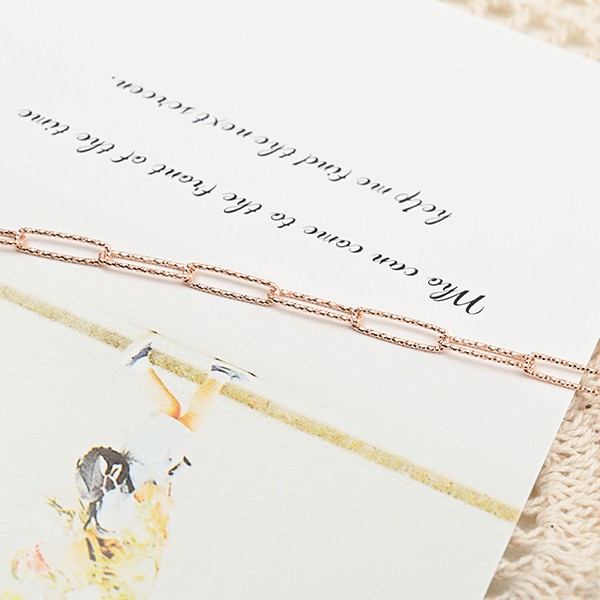 Who can come to the front of the time
help me find the next sc'reen.